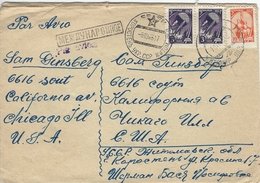 Par Avio
МЕЖДУНАРОДНОЕ
Sam Ginsberg
6616 sout
California av
Chicago Ill
U.S.A.
Сам Гинзберг
6616 соут
Калифорния ав
Чикаго Илл
С.Ш.А.
УССР Житомирская обл
г Коростень ул Красина 17
Шерман Бася Иосифовна